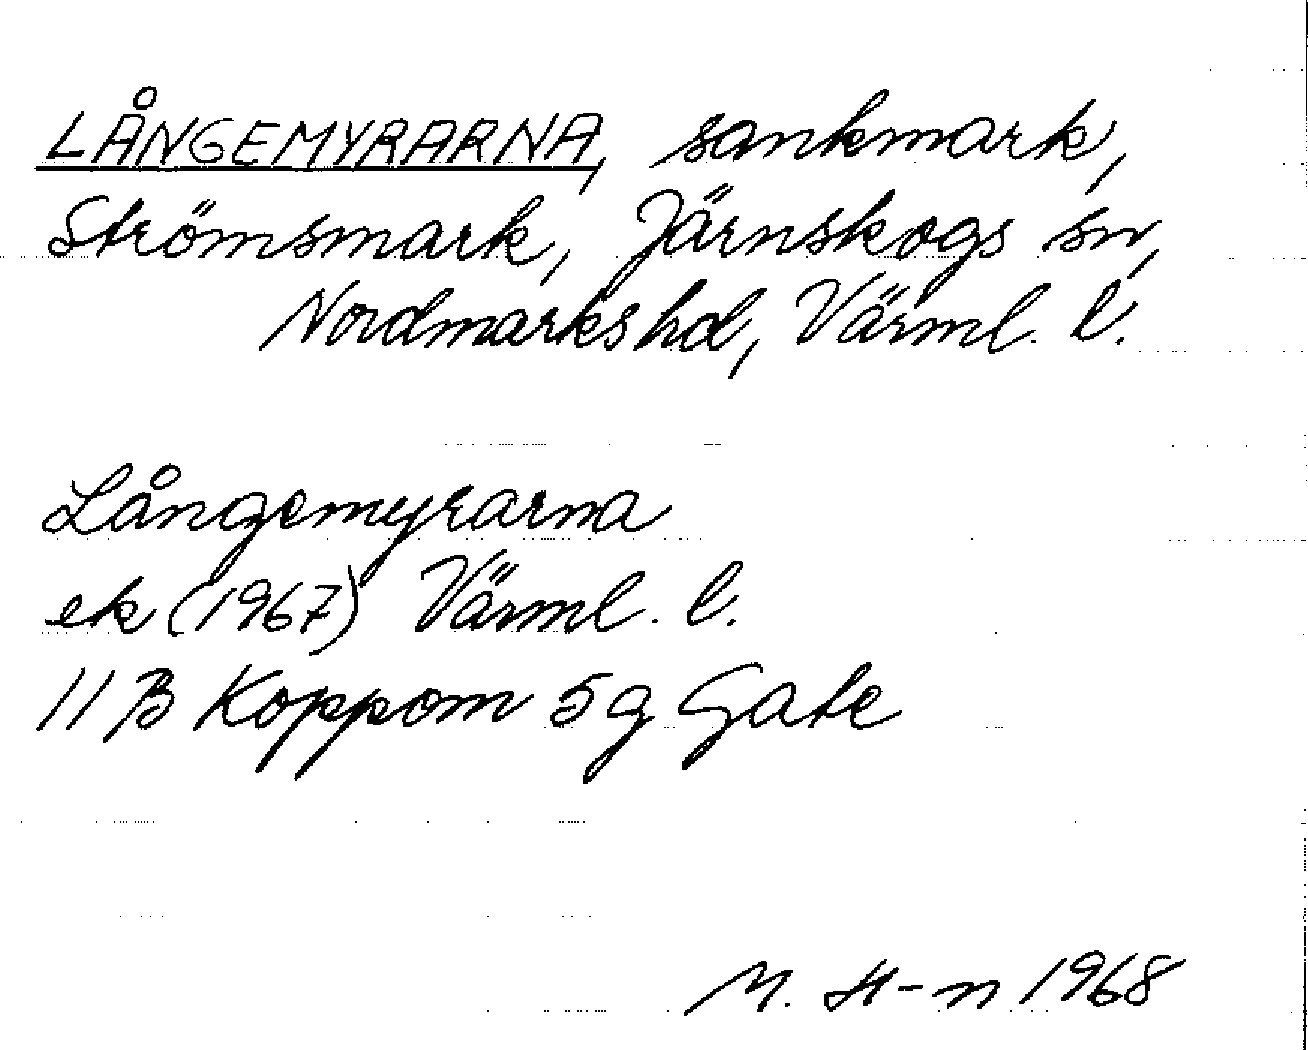 LÅNGEMYRARNA, sankmark,
Strömsmark, Järnskogs sn,
Nordmarks hd, Värml. l.
Långemyrarna
ek (1967) Värml. l.
11 B Koppom 5 g Gate
M. H-n 1968